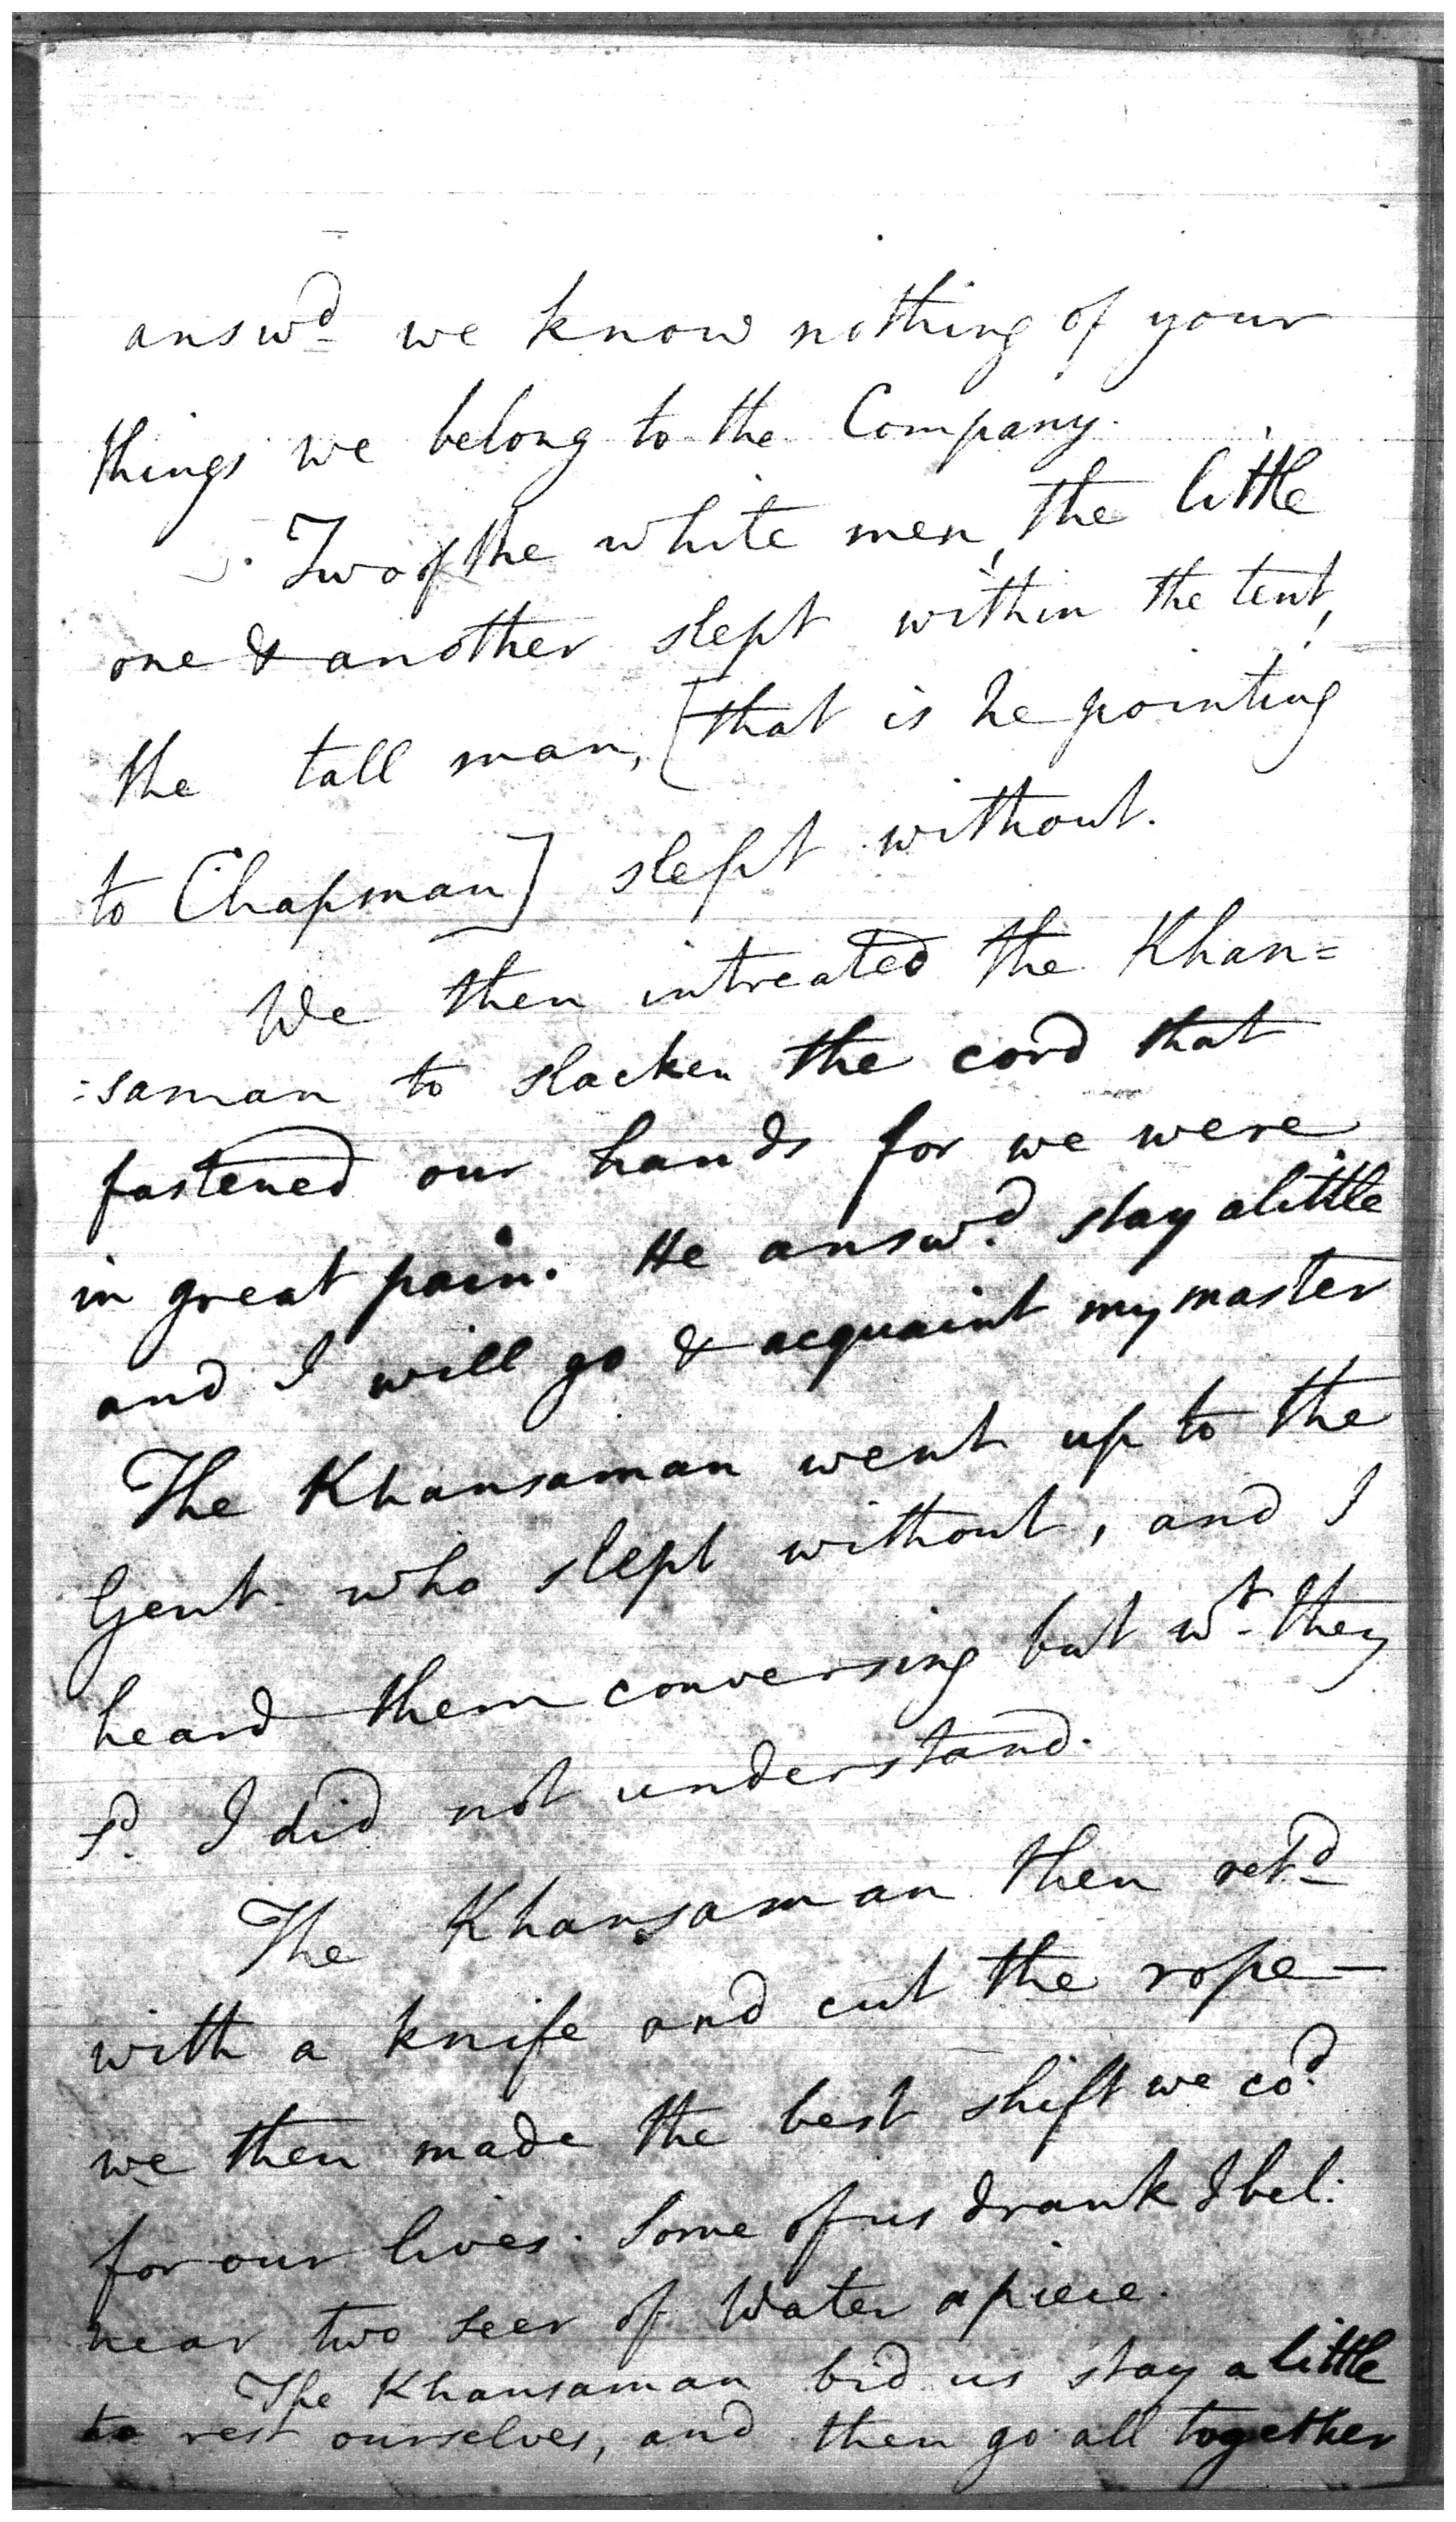 answd we know nothing of your
things we belong to the Company.
Two of the white men, the little
one & another slept within the tent,
the tall man, [that is he pointing
to Chapman] slept without.
We then intreated the Khan=
:saman to slacken the cord that
fastened our hands for we were
in great pain. He answd. stay a little
and I will go & acquaint my master
The Khansaman went up to the
Gent. who slept without, and I
heard them conversing but wt. they
sd. I did not understand.
The Khansaman then retd
with a knife and cut the rope—
we then made the best shift we cod.
for our lives. Some of us drank I bel:
near two seer of Water apiece.
The Khansaman bid us stay a little
to rest ourselves, and then go all together